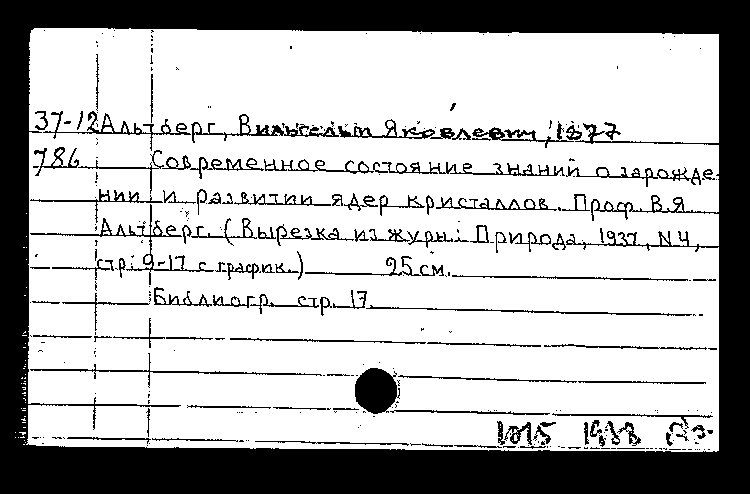 37-12 Альтберг, Вильгельм Яковлевич, 1877
786 Современное состояние знаний о зарожде-
нии и развитии ядер кристаллов. Проф. В.Я.
Альтберг. (Вырезка из журн.: Природа, 1937, N4,
стр: 9-17 с график.) 25 см.
Библиогр. стр. 17.
1015 1938